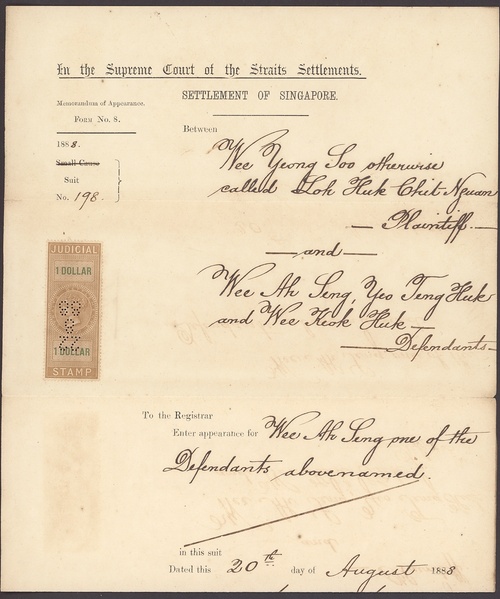 In the Supreme Court of the Straits Settlements.
SETTLEMENT OF SINGAPORE.
Memorandum of Appearance.
FORM No. 8.
1888.
Small Cause
Suit
No. 198.
Between
Wee Yeong Soo otherwise
called Loh Huk Chit Nguan
— Plaintiff. —
— and —
Wee Ah Seng, Yeo Teng Huk
and Wee Keok Huk —
— Defendants —
JUDICIAL
1 DOLLAR
1 DOLLAR
STAMP
To the Registrar
Enter appearance for Wee Ah Seng one of the
Defendants abovenamed.
in this suit
Dated this 20th day of August 1888